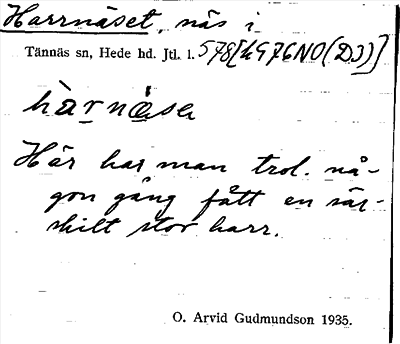 Harrnäset, näs i
Tännäs sn, Hede hd. Jtl. l. 578[
Här har man trol. nå-
gon gång fått en sär-
skilt stor harr.
O. Arvid Gudmundson 1935.